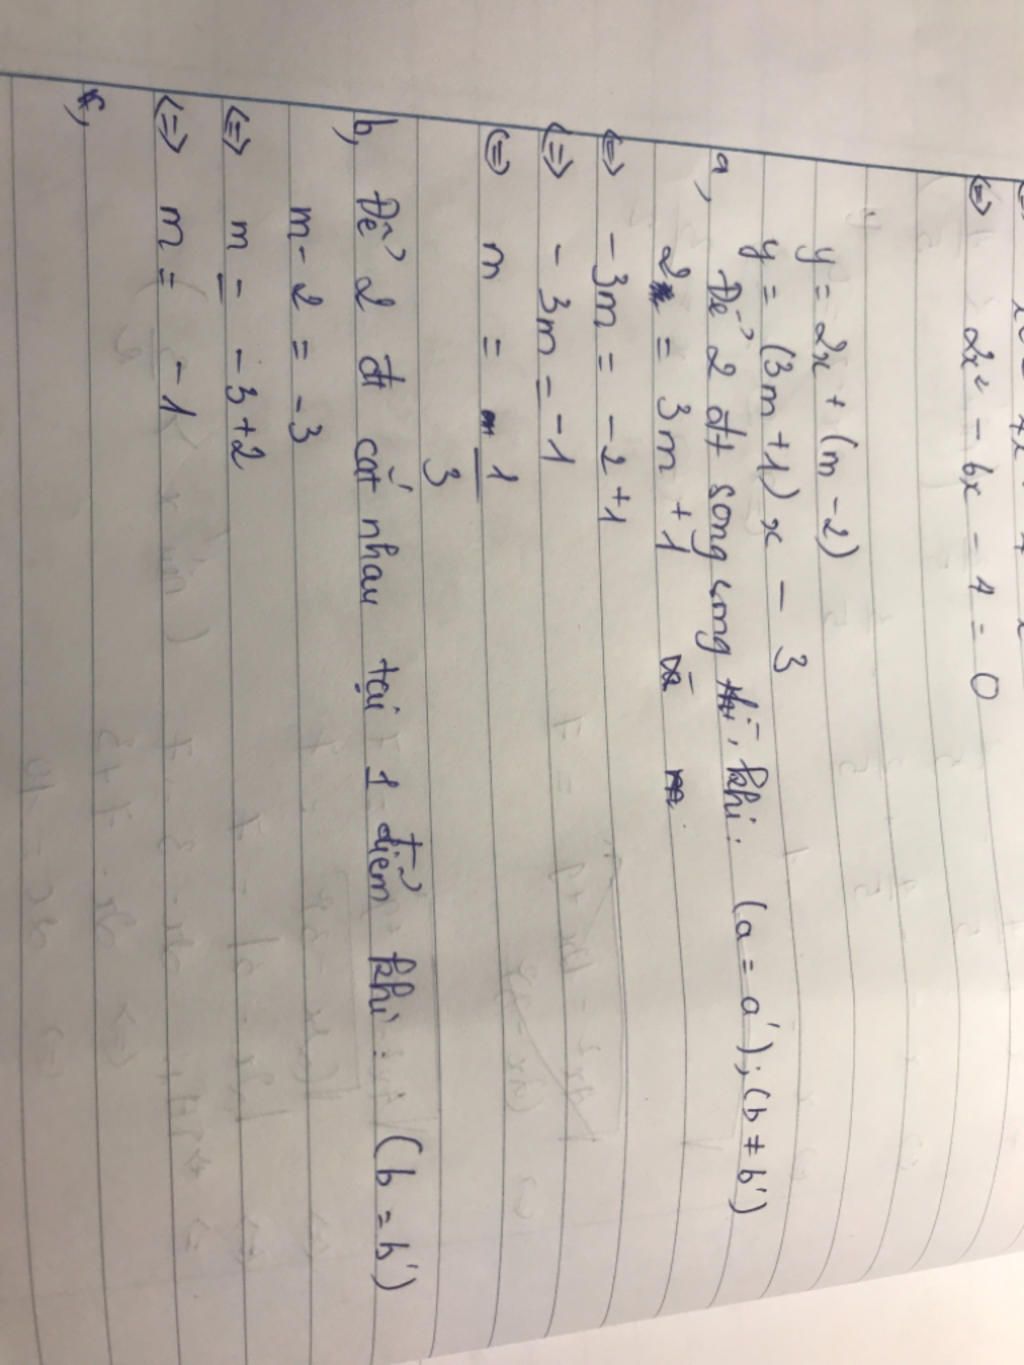 ⇔ 2x² - 6x - 4 = 0
y = 2x + (m - 2)
y = (3m + 1) x - 3
a, Để 2 đt song song thì khi: (a = a'); (b ≠ b')
2 = 3m + 1 và m
⇔ -3m = -2 + 1
⇔ -3m = -1
⇔ m = 1/3
b, Để 2 đt cắt nhau tại 1 điểm khi: (b = b')
m - 2 = -3
⇔ m = -3 + 2
⇔ m = -1
c,